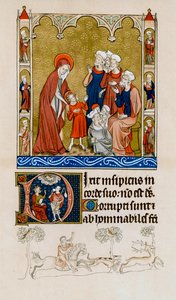 Dixit insipiens in
corde suo: nō est ds̄.
Corrupti sunt
abhominabiles